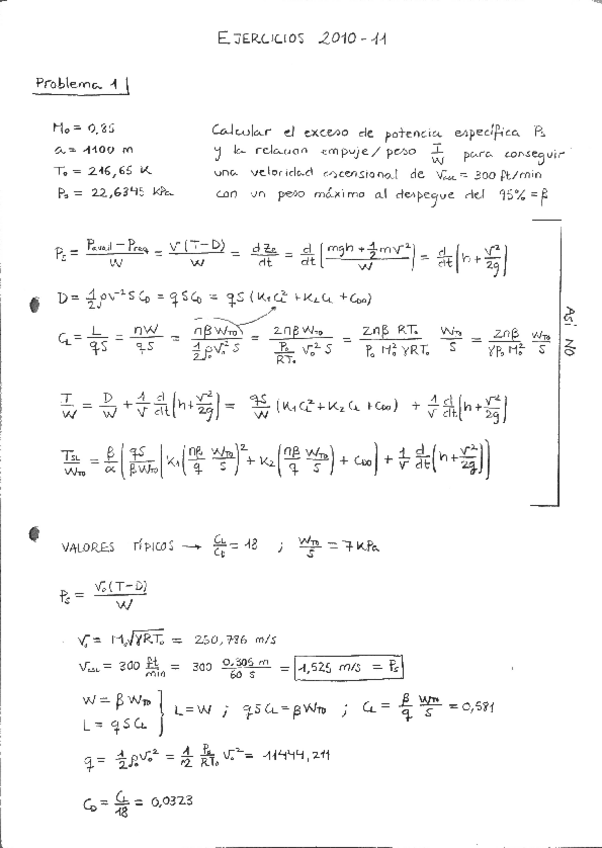 EJERCICIOS 2010-11
Problema 1
M₀ = 0,85 Calcular el exceso de potencia específica Ps
a = 1100 m y la relación empuje/peso T/W para conseguir
T₀ = 216,65 K una velocidad ascensional de Vasc = 300 ft/min
P₀ = 22,6345 kPa con un peso máximo al despegue del 95% = β
Ps = (Pavail - Preq)/W = V(T-D)/W = dZe/dt = d/dt ((mgh + 1/2 mv²)/W) = d/dt (h + v²/2g)
D = 1/2 ρV²S C_D = qSC_D = qS (K₁C_L² + K₂C_L + C_D0)
C_L = L/qS = nW/qS = nβW_TO/(1/2 ρV₀²S) = 2nβW_TO/(P₀/RT₀ V₀²S) = 2nβ RT₀/(P₀ M₀² γRT₀) W_TO/S = 2nβ/(γP₀M₀²) W_TO/S
T/W = D/W + 1/V d/dt (h + v²/2g) = qS/W (K₁C_L² + K₂C_L + C_D0) + 1/V d/dt (h + v²/2g)
T_SL/W_TO = β/α (qS/βW_TO (K₁ (nβ/q W_TO/S)² + K₂ (nβ/q W_TO/S) + C_D0) + 1/V d/dt (h + v²/2g))
Así NO
VALORES TÍPICOS → C_L/C_D = 18 ; W_TO/S = 7 kPa
Ps = V₀(T-D)/W
V₀ = M₀√γRT₀ = 250,786 m/s
Vasc = 300 ft/min = 300 0,305 m/60 s = 1,525 m/s = Ps
W = βW_TO
L = qSC_L } L = W ; qSC_L = βW_TO ; C_L = β/q W_TO/S = 0,581
q = 1/2 ρ₀V₀² = 1/2 P₀/RT₀ V₀² = 11444,211
C_D = C_L/18 = 0,0323